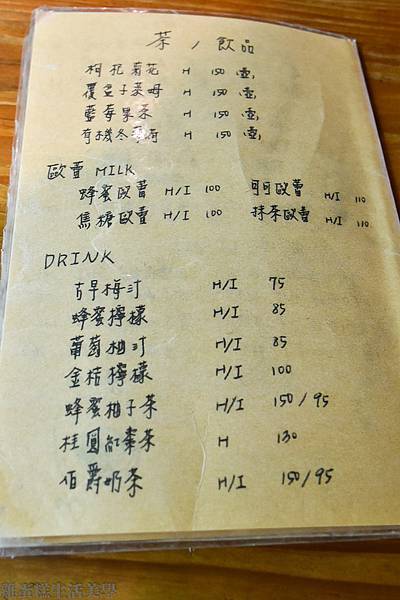 茶 / 飲品
枸杞菊花 H 150 壺
覆盆子菓母 H 150 壺
藍莓果茶 H 150 壺
有機冬薄荷 H 150 壺
歐蕾 MILK
蜂蜜歐蕾 H/I 100 可可歐蕾 H/I 110
焦糖歐蕾 H/I 100 抹茶歐蕾 H/I 110
DRINK
古早梅汁 H/I 75
蜂蜜檸檬 H/I 85
葡萄柚汁 H/I 85
金桔檸檬 H/I 100
蜂蜜柚子茶 H/I 150/95
桂圓紅棗茶 H 130
伯爵奶茶 H/I 150/95
雞蛋糕生活美學